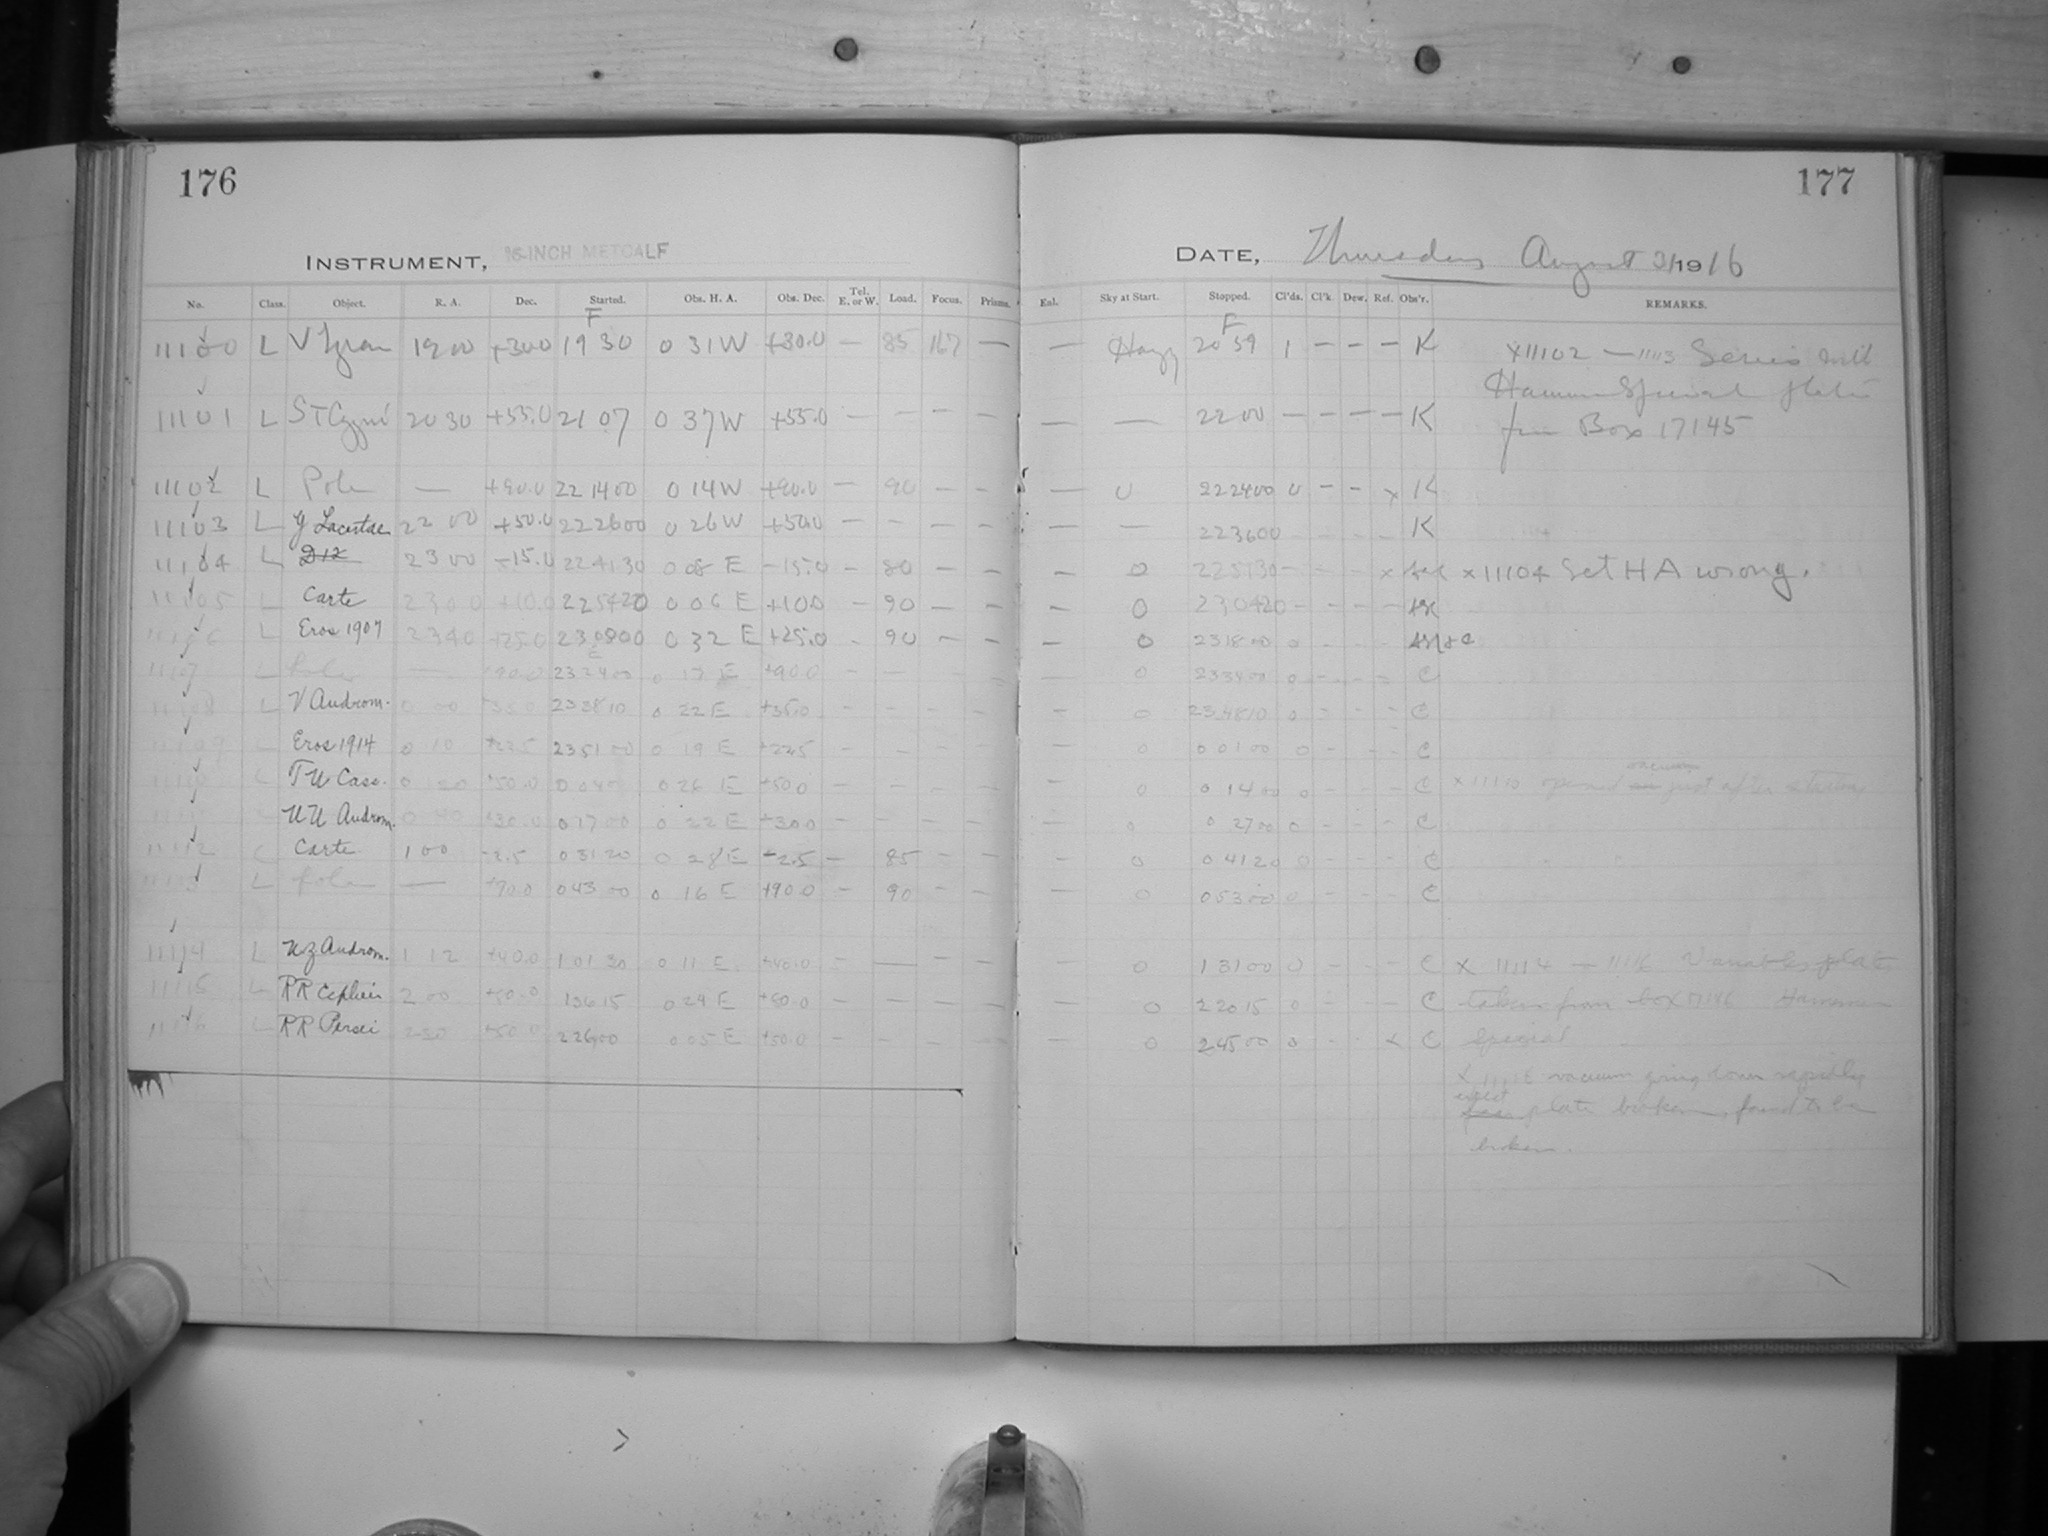 176
177
INSTRUMENT, 16-INCH METCALF
DATE, Thursday August 31 1916
No. Class. Object. R. A. Dec. Started. Obs. H. A. Obs. Dec. Tel. E. or W. Load. Focus. Prisms. Enl. Sky at Start. Stopped. Cl'ds. Cl'k. Dew. Ref. Obs'r. REMARKS.
F F
11100 L V Lyrae 19 00 +30.0 19 30 0 31 W +30.0 — 85 167 — — Hazy 20 59 1 — — — K x11102 — 11113 Series
Hammer Special plates
11101 L ST Cygni 20 30 +55.0 21 07 0 37 W +55.0 — — — — — — 22 00 — — — — K from Box 17145
11102 L Pole — +90.0 22 14 00 0 14 W +90.0 — 90 — — — 0 22 24 00 0 — — x K
11103 L Y Lacertae 22 00 +50.0 22 26 00 0 26 W +50.0 — — — — — — 22 36 00 K
11104 L D12 23 00 -15.0 22 41 30 0 08 E -15.0 — 80 — — — 0 22 51 30 — — — x x11104 Set H A wrong.
11105 L Carte 23 00 +10.0 22 54 20 0 06 E +10.0 — 90 — — — 0 23 04 20 — — — —
11106 L Eros 1907 23 40 +25.0 23 08 00 0 32 E +25.0 — 90 — — — 0 23 18 00 0 — — —
E
11107 L Pole — +90.0 23 24 00 0 17 E +90.0 — — — — — 0 23 34 00 0 — — — C
11108 L V Androm. 0 00 +35.0 23 38 10 0 22 E +35.0 — — — — — 0 23 48 10 0 — — — C
11109 L Eros 1914 0 10 +22.5 23 51 00 0 19 E +22.5 — — — — — 0 0 01 00 0 — — — C
11110 L TU Cass. 0 20 +50.0 0 04 0 26 E +50.0 — — — — — 0 0 14 00 0 — — — C x11110 opened vacuum just after starting
UU Androm. 0 40 +30.0 0 17 00 0 22 E +30.0 — — — — — 0 0 27 00 0 — — — C
11112 L Carte 1 00 -2.5 0 31 20 0 28 E -2.5 — 85 — — — 0 0 41 20 0 — — — C
11113 L Pole — +90.0 0 43 00 0 16 E +90.0 — 90 — — — 0 0 53 00 0 — — — C
11114 L UZ Androm. 1 12 +40.0 1 01 30 0 11 E +40.0 — — — — — 0 1 31 00 0 — — — C x 11114 — 11116 Variables plates
11115 L RR Cephei 2 00 +80.0 1 36 15 0 29 E +80.0 — — — — — 0 2 20 15 0 — — — C taken from box 17146 Hammer
11116 L RR Persei 2 30 +50.0 2 26 00 0 05 E +50.0 — — — — — 0 2 45 00 0 — — x C Special
x 11116 vacuum going down rapidly
expect plate broken, found to be
broken.